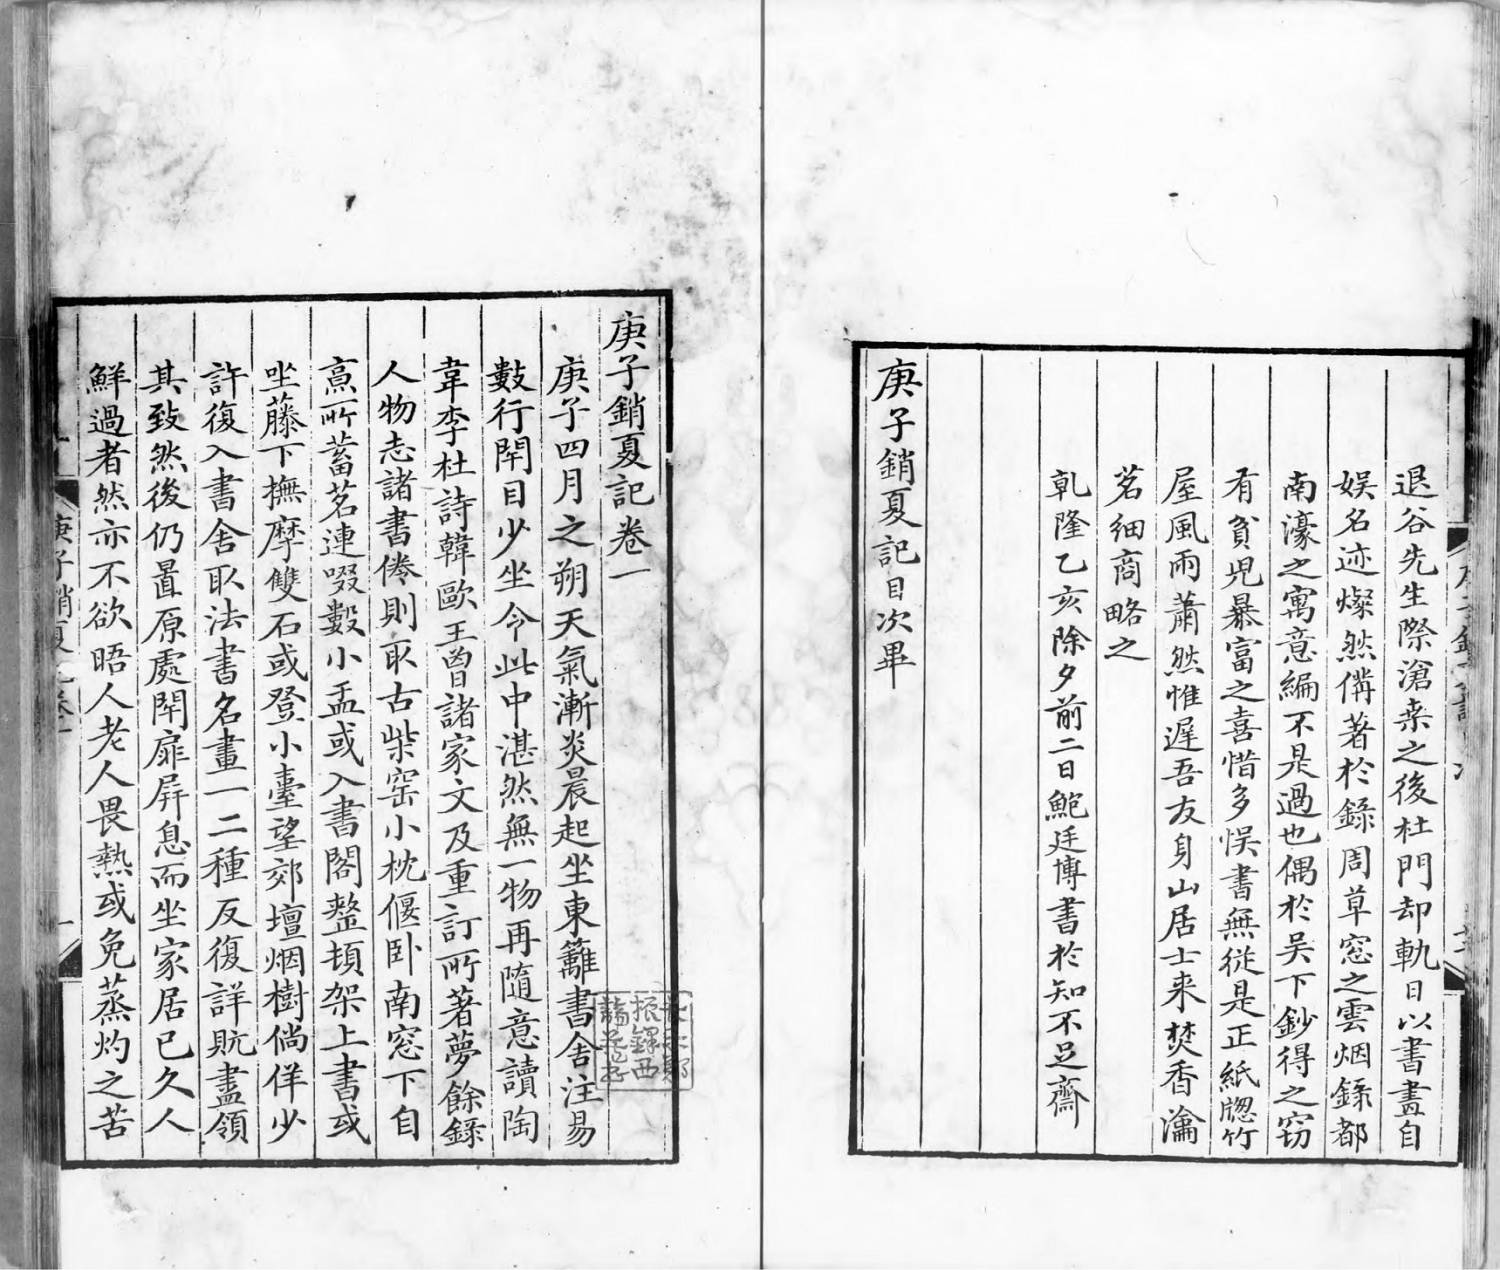 退谷先生際滄桒之後杜門却軌日以書畫自
娱名迹燦然僃著於錄周草窓之雲烟錄都
南濠之寓意編不是過也偶於吴下鈔得之窃
有貧児暴富之喜惜多悮書無従是正紙牕竹
屋風雨蕭然惟遲吾友身山居士来焚香瀹
茗細商略之
乹隆乙亥除夕前二日鮑廷博書於知不足齋
庚子銷夏記目次畢
庚子銷夏記卷一
庚子四月之朔天氣漸炎晨起坐東籬書舍注易
數行閉目少坐令此中湛然無一物再隨意讀陶
韋李杜詩韓歐王曾諸家文及重訂所著夢餘錄
人物志諸書倦則取古柴窑小枕偃卧南窓下自
烹所蓄茗連啜數小盂或入書閣整頓架上書或
坐藤下撫摩雙石或登小臺望郊壇烟樹倘佯少
許復入書舍取法書名畫一二種反復詳翫盡領
其致然後仍置原處閉扉屏息而坐家居已久人
鮮過者然亦不欲晤人老人畏熱或免蒸灼之苦
庚子銷夏記卷一
一